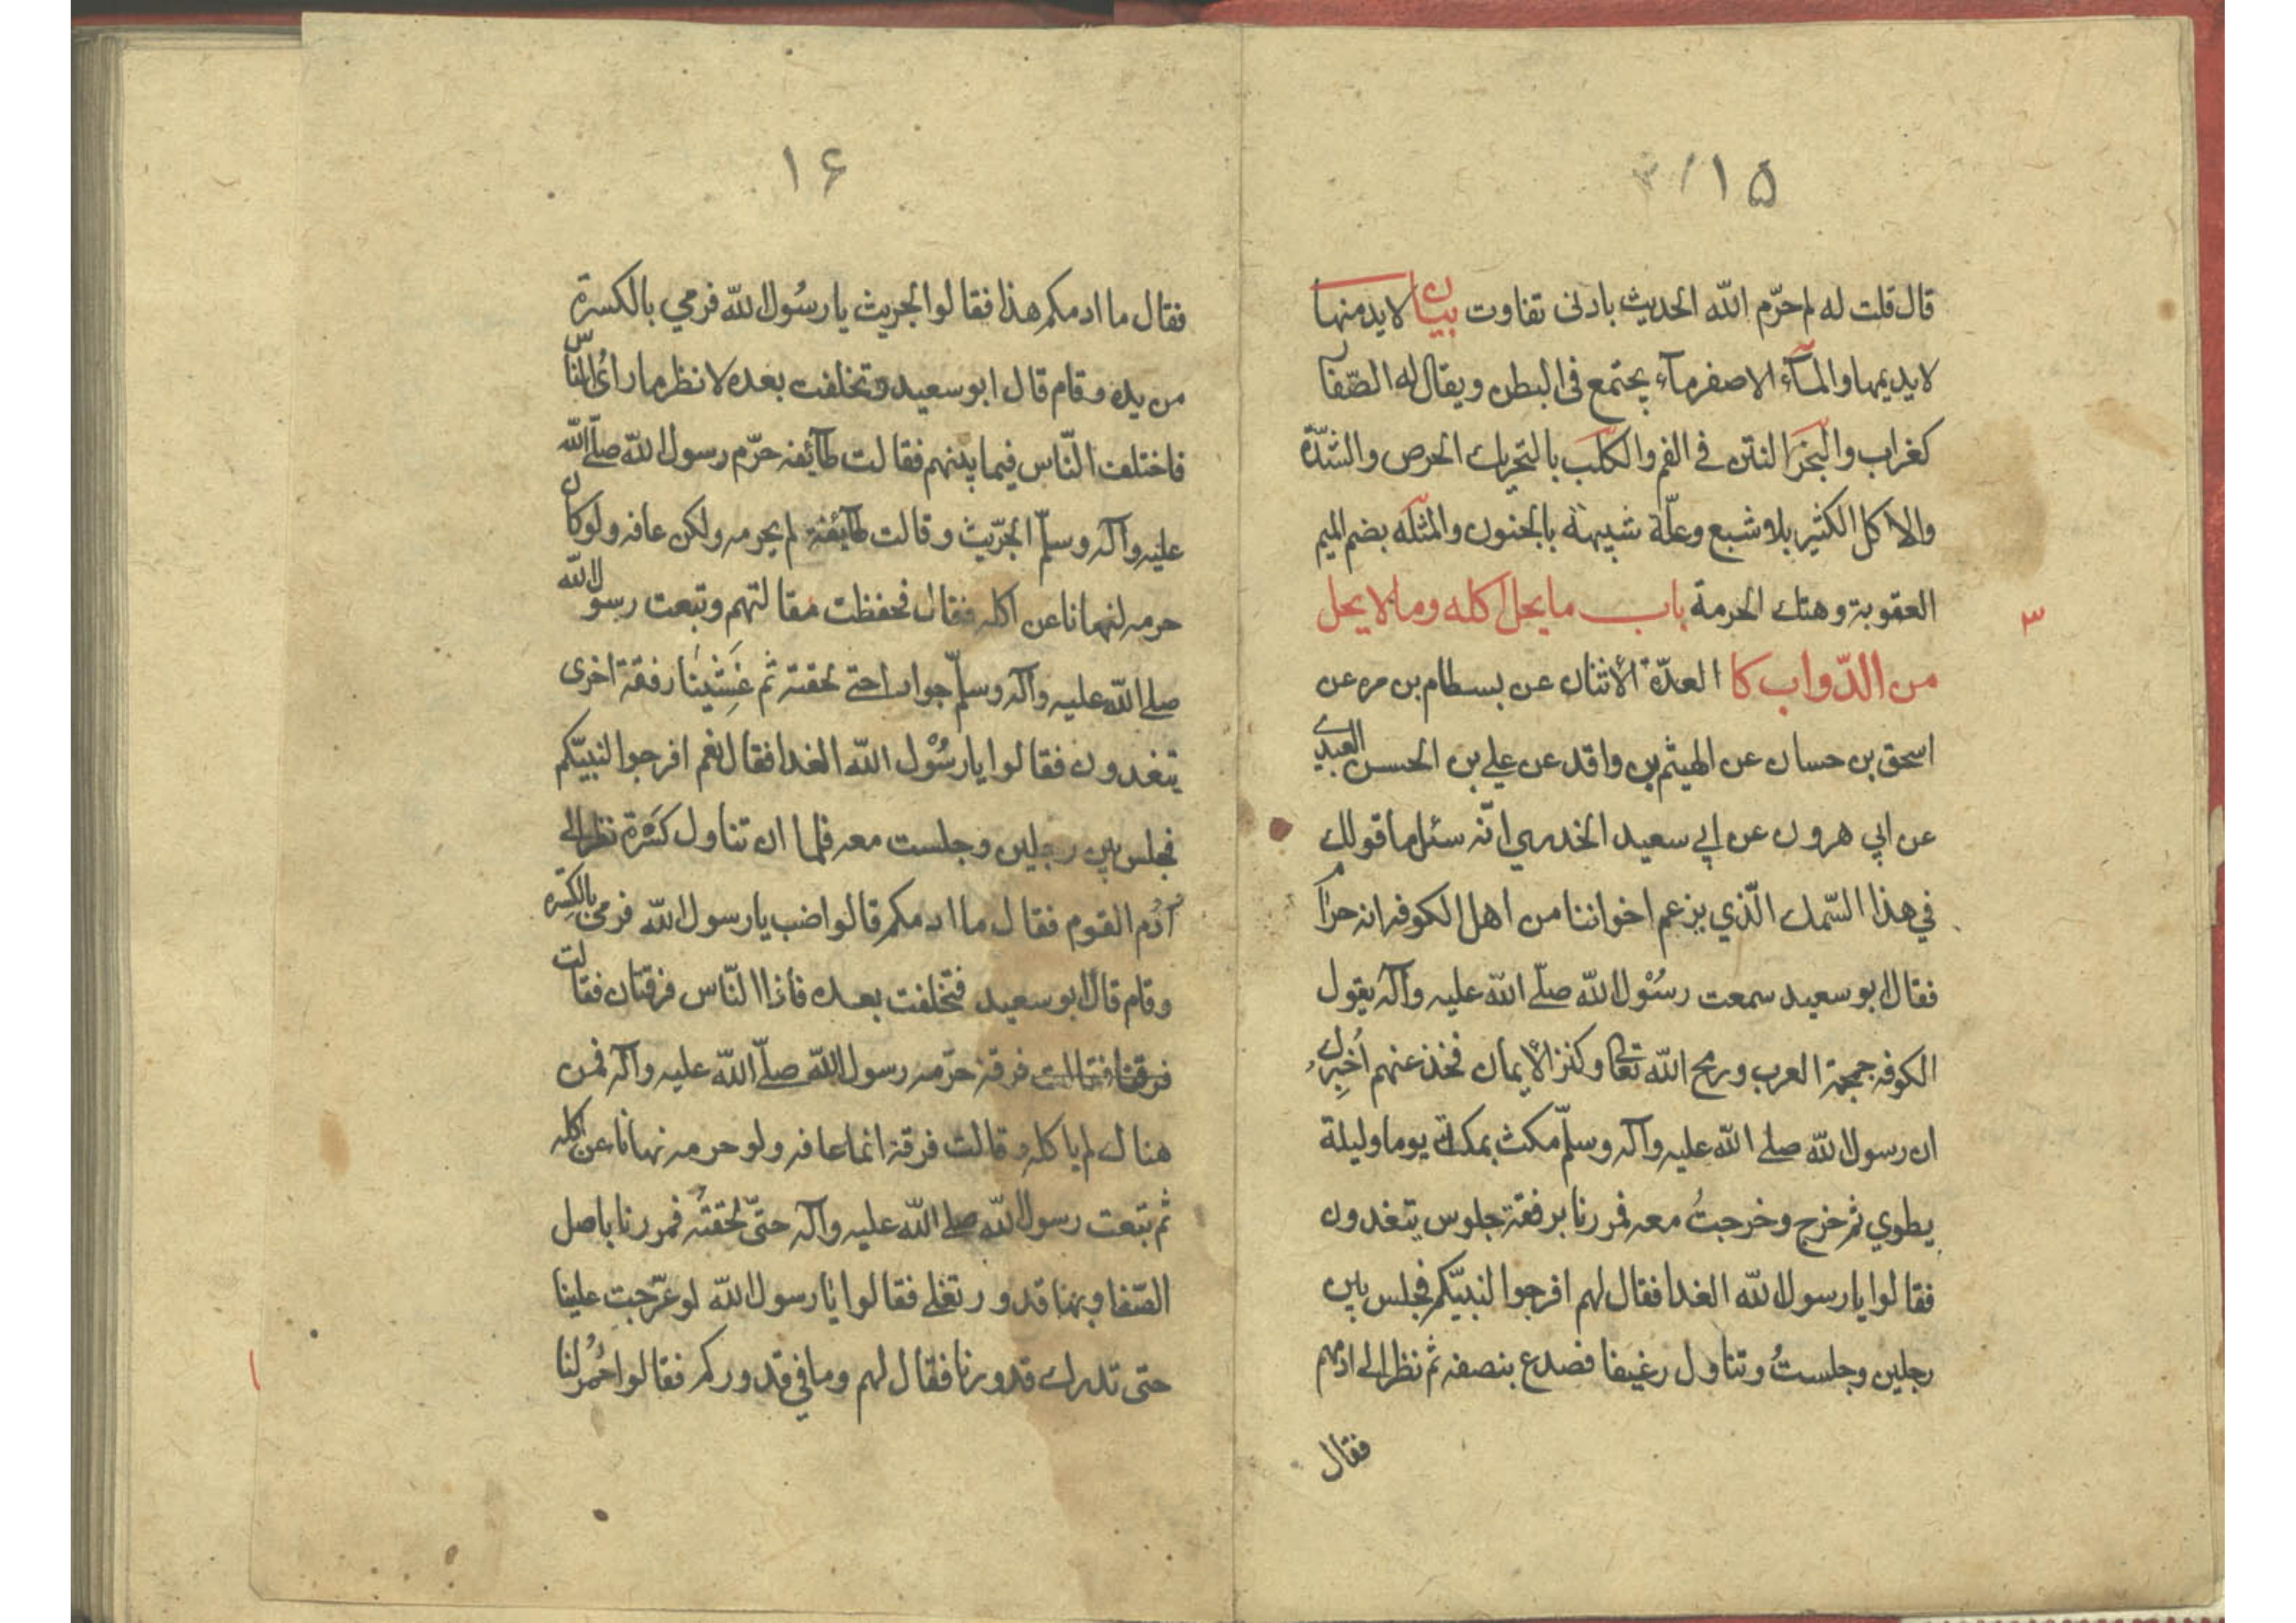 ۱۵
قال قلت له لم حرّم الله الحديث بادنى تفاوت بيان لا يدمنها
لا يديمها والمآء الاصفر مآء يجتمع فى البطن ويقال له الصّفار
كغراب والبَخَر النتن في الفم والكلَب بالتحريك الحرص والشدّة
والاكل الكثير بلا شبع وعلّة شبيهة بالجنون والمثله بضم الميم
العقوبة وهتك الحرمة باب ما يحل اكله وما لا يحل
۳
من الدّواب كا العدّة الأثنان عن بسطام بن مره عن
اسحق بن حسان عن الهيثم بن واقد عن علي بن الحسن العبدي
عن ابي هرون عن ابي سعيد الخدري انّه سئل ما قولك
في هذا السّمك الّذي يزعم اخواننا من اهل الكوفه انه حرام
فقال ابو سعيد سمعت رسُوْل الله صلّى الله عليه وآله يقول
الكوفه جمجمة العرب ورمح الله تعالى وكنز الأيمان فخذ عنهم أخبِرُك
ان رسول الله صلى الله عليه وآله وسلّم مكث بمكة يوما وليلة
يطوي ثم خرج وخرجتُ معه فمررنا برفقة جلوس يتغدون
فقالوا يا رسول الله الغدا فقال لهم افرجوا لنبيّكم فجلس بين
رجلين وجلستُ وتناول رغيفا فصدع بنصفه ثم نظر الى ادمهم
فقال
۱۶
فقال ما ادمكم هذا فقالوا الجريث يا رسُول الله فرمي بالكسرة
من يده وقام قال ابو سعيد وتخلفت بعده لانظر ما رأىُ النّاس
فاختلف النّاس فيما بينهم فقالت طآئفه حرّم رسول الله صلّى الله
عليه وآله وسلّم الجرّيث وقالت طآئفة لم يحرمه ولكن عافه ولو كان
حرمه لنهانا عن اكله فقال فحفظت مقالتهم وتبعت رسول الله
صلى الله عليه وآله وسلّم جوادا حتى لحقته ثم غَشِيْنَا رفقة اخرى
يتغدون فقالوا يا رسُوْل الله الغدا فقال نعم افرجوا لنبيّكم
فجلس بين رجلين وجلست معه فلما ان تناول كَسْرة نظر الى
أدُم القوم فقال ما ادمكم قالوا ضب يا رسول الله فرمى بالكِسْرة
وقام قال ابو سعيد فتخلفت بعده فاذا النّاس فرقتان فقالت
فرقتا فقالت فرقة حرّمه رسول الله صلّى الله عليه وآله فمن
هناك لم ياكله وقالت فرقة انما عافه ولو حرمه نهانا عن اكله
ثم تبعت رسول الله صلى الله عليه وآله حتىّ لحقتُه فمررنا باصل
الصّفا وبها قدور تغلى فقالوا يا رسول الله لو عرّجتِ علينا
حتى تدرك قدورنا فقال لهم وما في قدوركم فقالوا حُمُر لنا